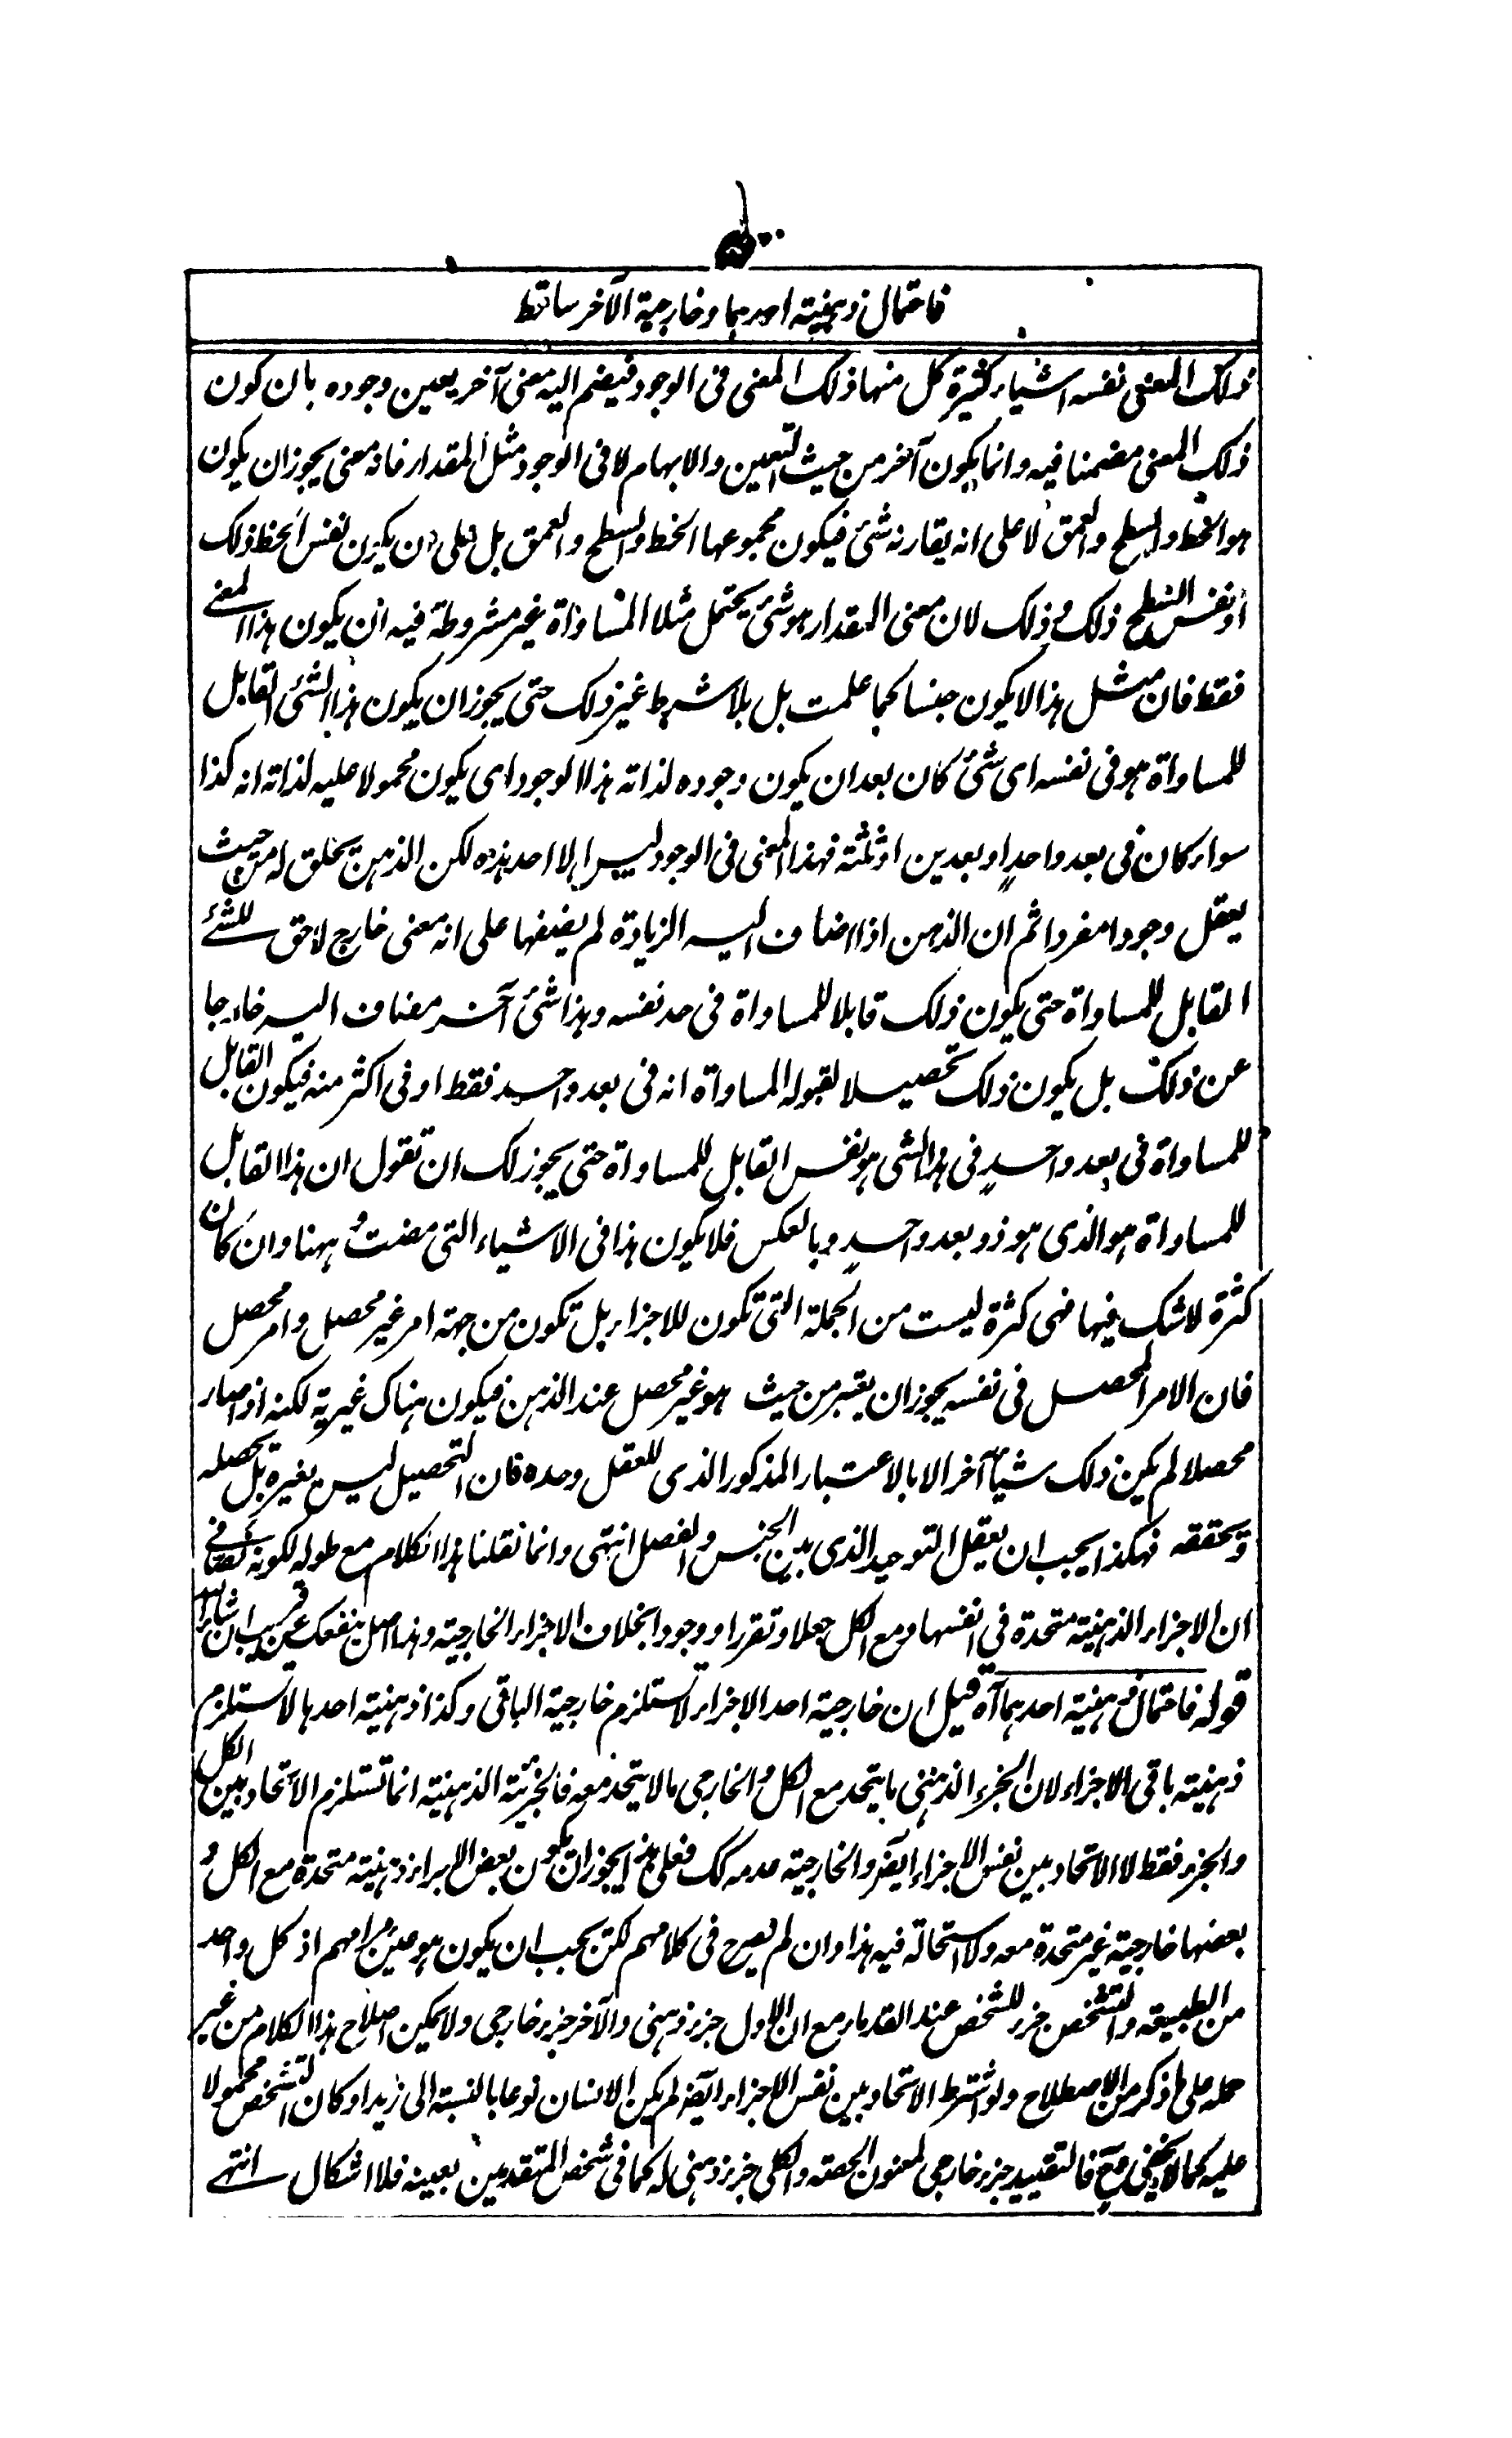 فاحتمال ذهنية احدهما وخارجية الآخر ساقط
ذلك المعنى نفسه اشياء كثيرة كل منها ذلك المعنى فى الوجود فيضم اليه معنى آخر يعين وجوده بان كون
ذلك المعنى مضمنا فيه وانما يكون آخر من حيث التعين والابهام لا فى الوجود مثل المقدار فانه معنى يجوز ان يكون
هو الخط والسطح والعمق لا على انه يقارنه شئ فيكون مجموعها الخط والسطح والعمق بل على ان يكون نفس الخط ذلك
او نفس السطح ذلك وذلك لان معنى المقدار هو شئ يحتمل مثلا المساواة غير مشروطة فيه ان يكون هذا المعنے
فقط فان مثل هذا لا يكون جنسا كما علمت بل بلا شرط غير ذلك حتى يجوز ان يكون هذا الشئ القابل
للمساواة هو فى نفسه اى شئ كان بعد ان يكون وجوده لذاته هذا الوجود اى يكون محمولا عليه لذاته انه كذا
سواء كان فى بعد واحدٍ او بعدين او ثلثة فهذا المعنى فى الوجود ليس الا احد هذه لكن الذهن يخلق له من حيث
يعقل وجودا مفردا ثم ان الذهن اذا اضاف اليه الزيادة لم يضفها على انه معنى خارج لاحق للشئے
القابل للمساواة حتى يكون ذلك قابلا للمساواة فى حد نفسه وهذا شئ آخر مضاف اليه خارجا
عن ذلك بل يكون ذلك تحصيلا لقبوله المساواة انه فى بعد واحد فقط او فى اكثر منه فيكون القابل
للمساواة فى بعد واحدٍ فى هذا الشى هو نفس القابل للمساواة حتى يجوز لك ان تقول ان هذا القابل
للمساواة هو الذى هو ذو بعد واحدٍ وبالعكس فلا يكون هذا فى الاشياء التى مضت و ههنا وان كان
كثرة لا شك فيها فهى كثرة ليست من الجملة التى تكون للاجزاء بل تكون من جهة امر غير محصل وامر محصل
فان الامر المحصل فى نفسه يجوز ان يعتبر من حيث هو غير محصل عند الذهن فيكون هناك غيرية لكنه اذا صار
محصلا لم يكن ذلك شيأ آخر الا بالاعتبار المذكور الذى للعقل وحده فان التحصيل ليس يغيره بل يحصله
ويحققه فهكذا يجب ان يعقل التوحيد الذى بين الجنس والفصل انتهى وانما نقلنا هذا الكلام مع طوله لكونه نصا فى
ان الاجزاء الذهنية متحدة فى انفسها ومع الكل جعلا وتقررا ووجودا بخلاف الاجزاء الخارجية وهذا اصل ينفعك عن قريب ان شاء الله
قوله فاحتمال ذهنية احدهما آه قيل ان خارجية احد الاجزاء لا تستلزم خارجية الباقى وكذا ذهنية احدها لا تستلزم
ذهنية باقى الاجزاء لان الجزء الذهنى ما يتحد مع الكل والخارجى ما لا يتحد معه فالجزئية الذهنية انما تستلزم الاتحاد بين الكل
والجزء فقط لا الاتحاد بين نفس الاجزاء ايضا والخارجية عدمه كك فعلى هذا يجوز ان يكون بعض الاجزاء ذهنية متحدة مع الكل و
بعضها خارجية غير متحدة معه ولا استحالة فيه هذا وان لم يصرح فى كلامهم لكن يجب ان يكون هو عين مرامهم اذ كل واحد
من الطبيعة والتشخص جزء للشخص عند القدماء مع ان الاول جزء ذهنى والآخر جزء خارجى ولا يمكن اصلاح هذا الكلام من غير
حمله على ما ذكر من الاصطلاح ولو اشترط الاتحاد بين نفس الاجزاء ايضا لم يكن الانسان نوعا بالنسبة الى زيد او كان التشخص محمولا
عليه كما لا يخفى فالتقييد جزء خارجى لمعنون الحصة والكلى جزء ذهنى له كما فى شخص المتقدمين بعينه فلا اشكال انتهے